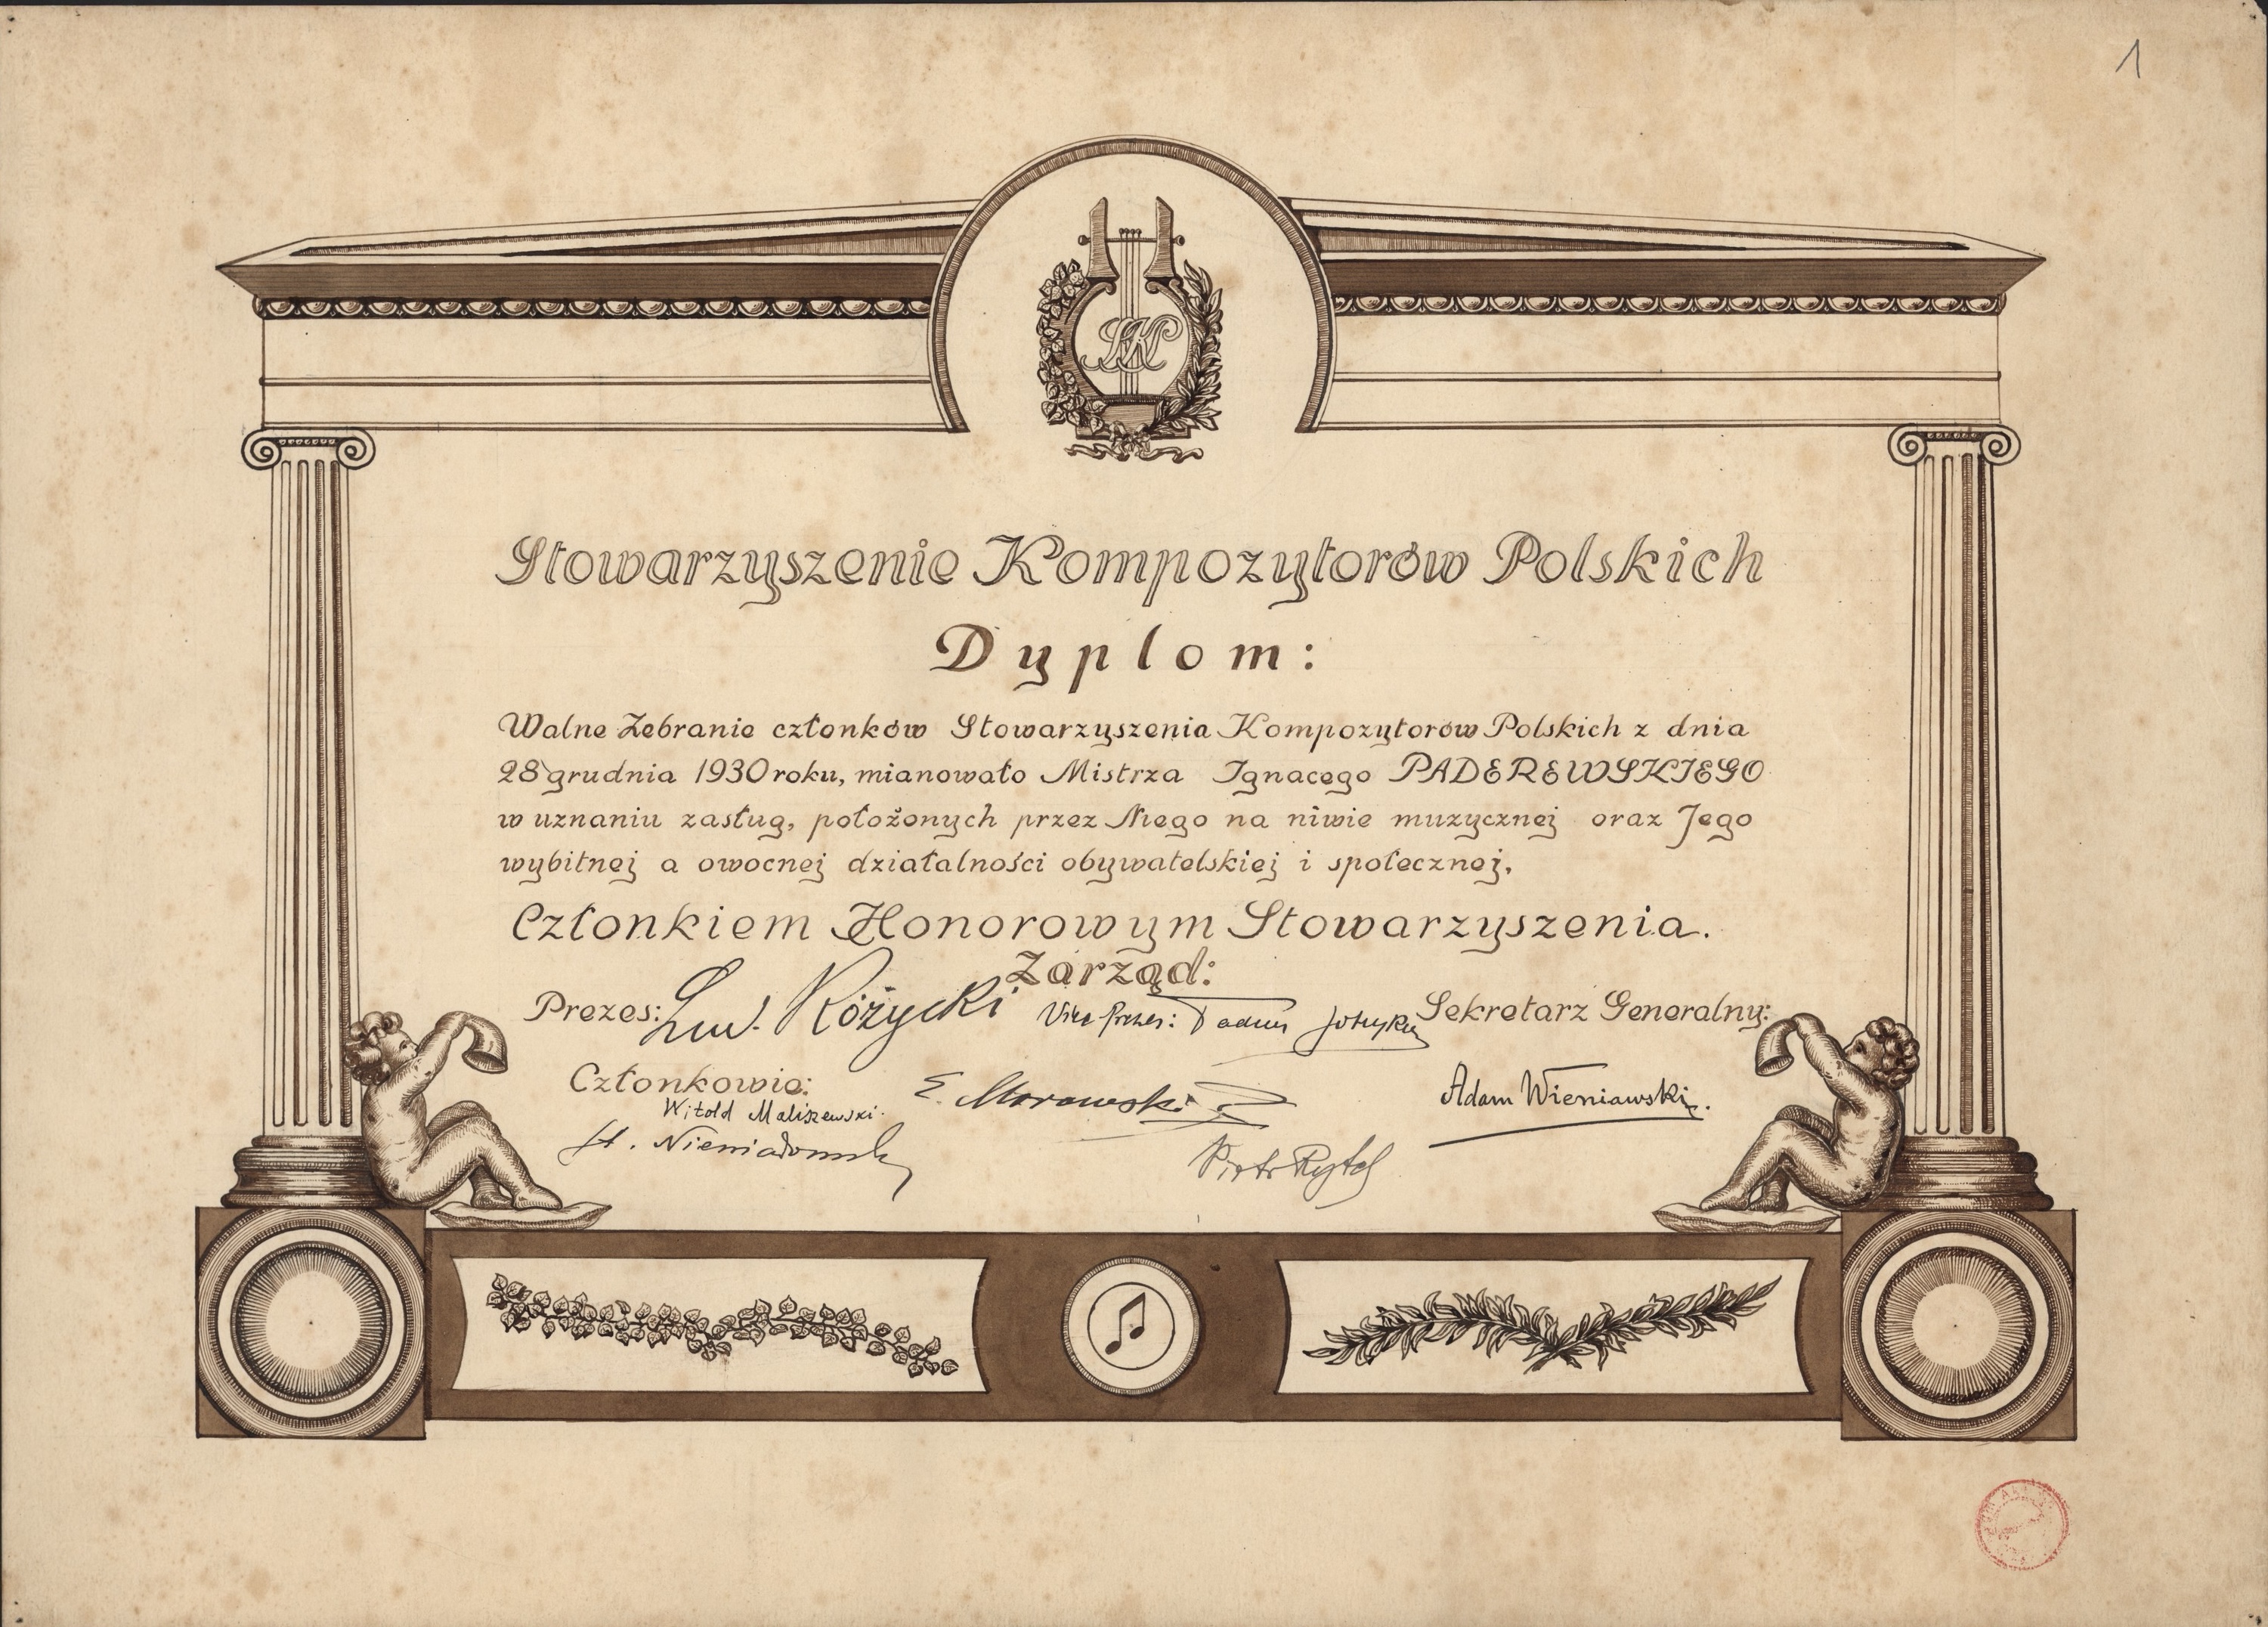 1
SKP
Stowarzyszenie Kompozytorów Polskich
Dyplom:
Walne Zebranie członków Stowarzyszenia Kompozytorów Polskich z dnia
28 grudnia 1930 roku, mianowało Mistrza Ignacego PADEREWSKIEGO
w uznaniu zasług, położonych przez Niego na niwie muzycznej oraz Jego
wybitnej a owocnej działalności obywatelskiej i społecznej,
Członkiem Honorowym Stowarzyszenia.
Zarząd:
Prezes: Lud. Różycki Vice Prezes: Tadeusz Joteyko Sekretarz Generalny:
Członkowie: E. Morawski Adam Wieniawski.
Witold Maliszewski.
St. Niewiadomski Piotr Rytel